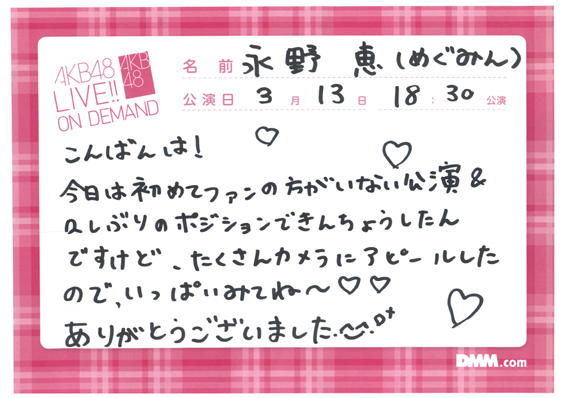 AKB48
LIVE!!
ON DEMAND
AKB
48
名前 永野 恵 (めぐみん)
公演日 3月13日 18:30公演
こんばんは!
今日は初めてファンの方がいない公演&
久しぶりのポジションできんちょうしたん
ですけど、たくさんカメラにアピールした
ので、いっぱいみてね〜♡♡
ありがとうございました
DMM.com